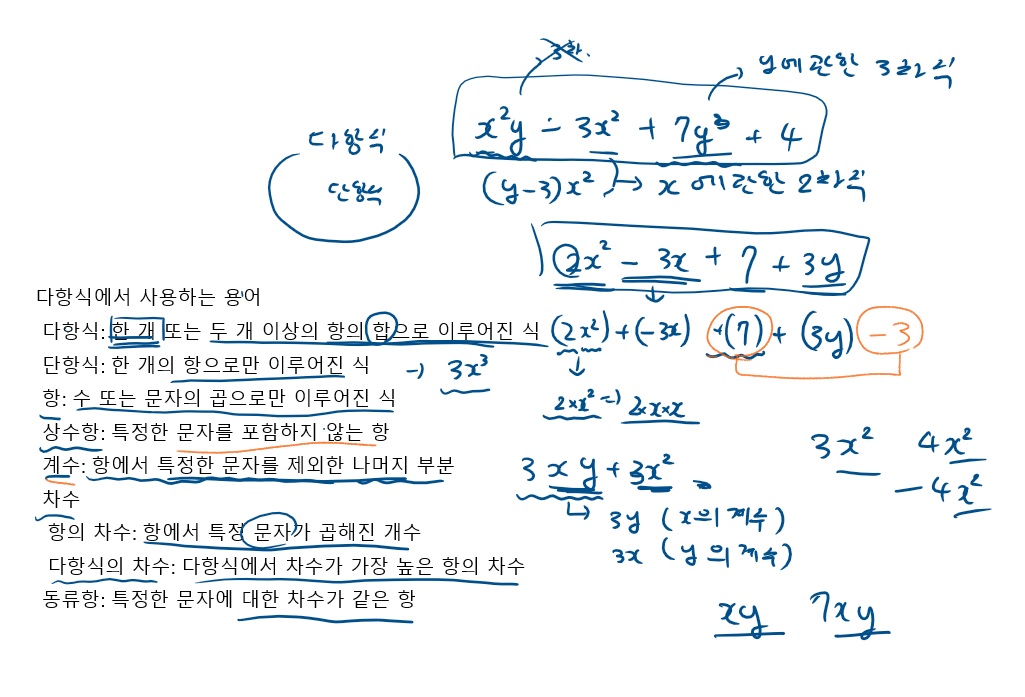 3차.
y에 관한 3차식
x²y - 3x² + 7y³ + 4
다항식
단항식
(y-3)x² → x에 관한 2차식
2x² - 3x + 7 + 3y
다항식에서 사용하는 용어
다항식: 한 개 또는 두 개 이상의 항의 합으로 이루어진 식
(2x²) + (-3x) + (7) + (3y) -3
단항식: 한 개의 항으로만 이루어진 식
→ 3x³
항: 수 또는 문자의 곱으로만 이루어진 식
2×x² ⇒ 2×x×x
상수항: 특정한 문자를 포함하지 않는 항
3x² 4x²
-4x²
계수: 항에서 특정한 문자를 제외한 나머지 부분
3xy + 3x²
차수
→ 3y (x의 계수)
항의 차수: 항에서 특정 문자가 곱해진 개수
3x (y의 계수)
다항식의 차수: 다항식에서 차수가 가장 높은 항의 차수
동류항: 특정한 문자에 대한 차수가 같은 항
xy 7xy